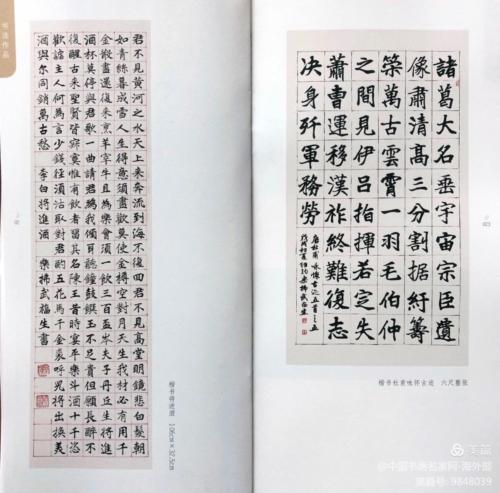 书法作品
君不見黃河之水天上來奔流到海不復回君不見高堂明鏡悲白髮朝
如青絲暮成雪人生得意須盡歡莫使金樽空對月天生我材必有用千
金散盡還復來烹羊宰牛且為樂會須一飲三百盃岑夫子丹丘生將進
酒杯莫停與君歌一曲請君為我傾耳聽鐘鼓饌玉不足貴但願長醉不
復醒古來聖賢皆寂寞惟有飲者留其名陳王昔時宴平樂斗酒十千恣
歡謔主人何為言少錢徑須沽取對君酌五花馬千金裘呼兒將出換美
酒與爾同銷萬古愁 李白將進酒 樂拂武福生書
楷书将进酒 106cm×32.5cm
諸葛大名垂宇宙宗臣遺
像肅清髙三分割据紆籌
築萬古雲霄一羽毛伯仲
之間見伊呂指揮若定失
蕭曹運移漢祚終難復志
决身歼軍務勞
唐杜甫 咏懷古迹五首之五
楷书杜甫咏怀古迹 六尺整张
美篇
@中国书画名家网·海外部
美篇号: 9848039